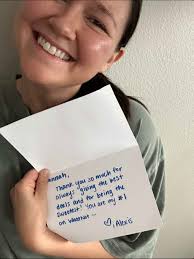 Thank you so much for
always "giving the best
deals and for being the
sweetest! You are my #1
on whatnot
♡, Alexis